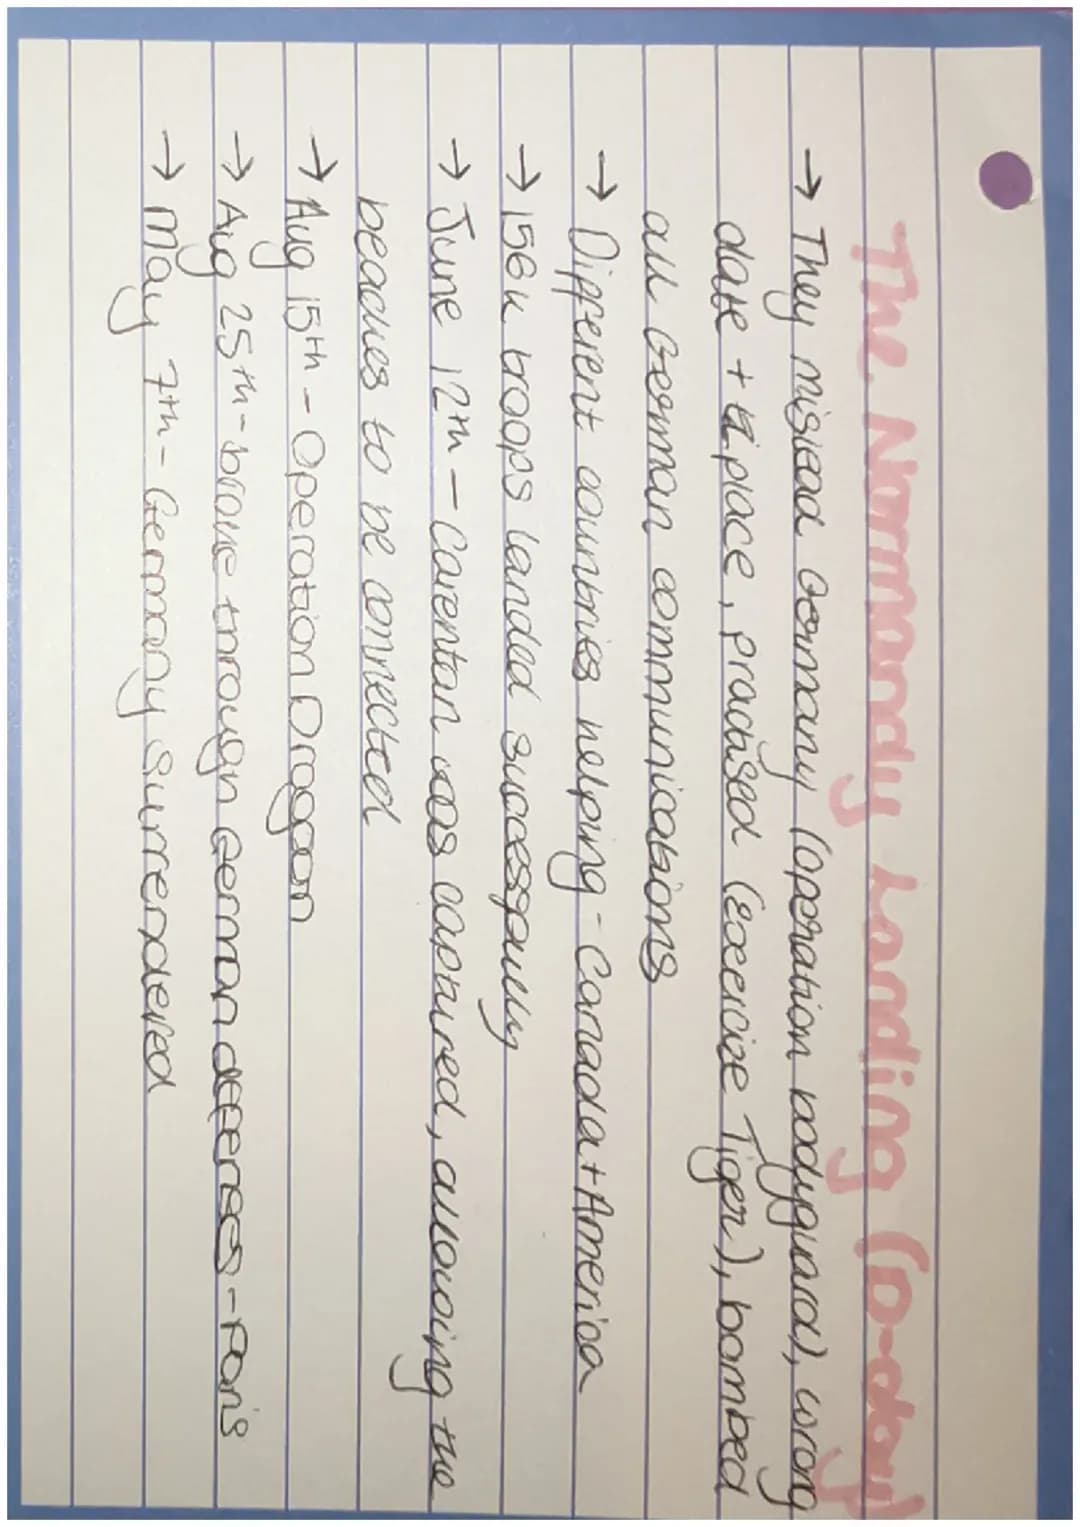 The Normandy Landing (D-day)
→ They mislead Germany (operation bodyguard), wrong
date + place, practised (Excercize Tiger), bombed
all German communications
→ Different countries helping - Canada + America
→ 156k troops landed successfully
→ June 12th - Carentan was captured, allowing the
beaches to be connected
→ Aug 15th - Operation Dragon
→ Aug 25th - broke through German defenses - Paris
→ May 7th - Germany Surrendered